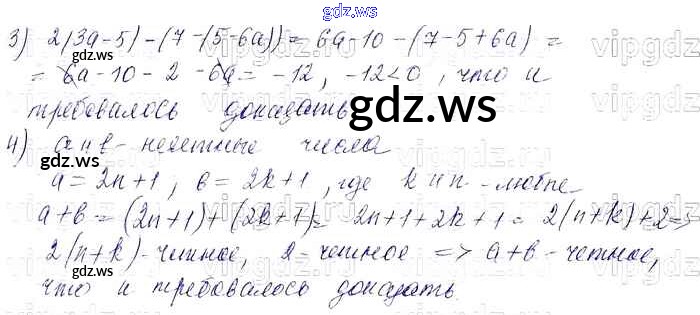 gdz.ws
3) 2(3a-5)-(7-(5-6a))= 6a-10-(7-5+6a)=
= 6a-10-2-6a= -12, -12<0, что и
требовалось доказать.
gdz.ws
4) a и b - нечетные числа
a=2n+1; b=2k+1, где k и n - любые
a+b=(2n+1)+(2k+1)= 2n+1+2k+1= 2(n+k)+2=>
2(n+k)-четное, 2-четное => a+b-четное,
что и требовалось доказать.
gdz.ws